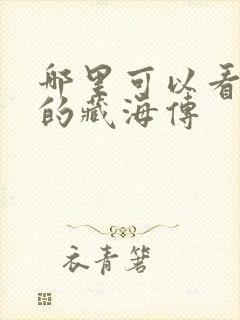 哪里可以看
的藏海傳
衣青箬